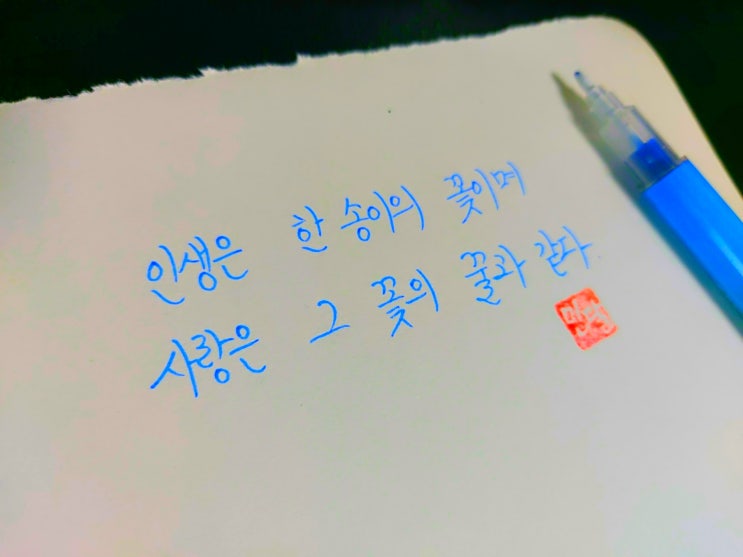 인생은 한 송이의 꽃이며
사랑은 그 꽃의 꿀과 같다